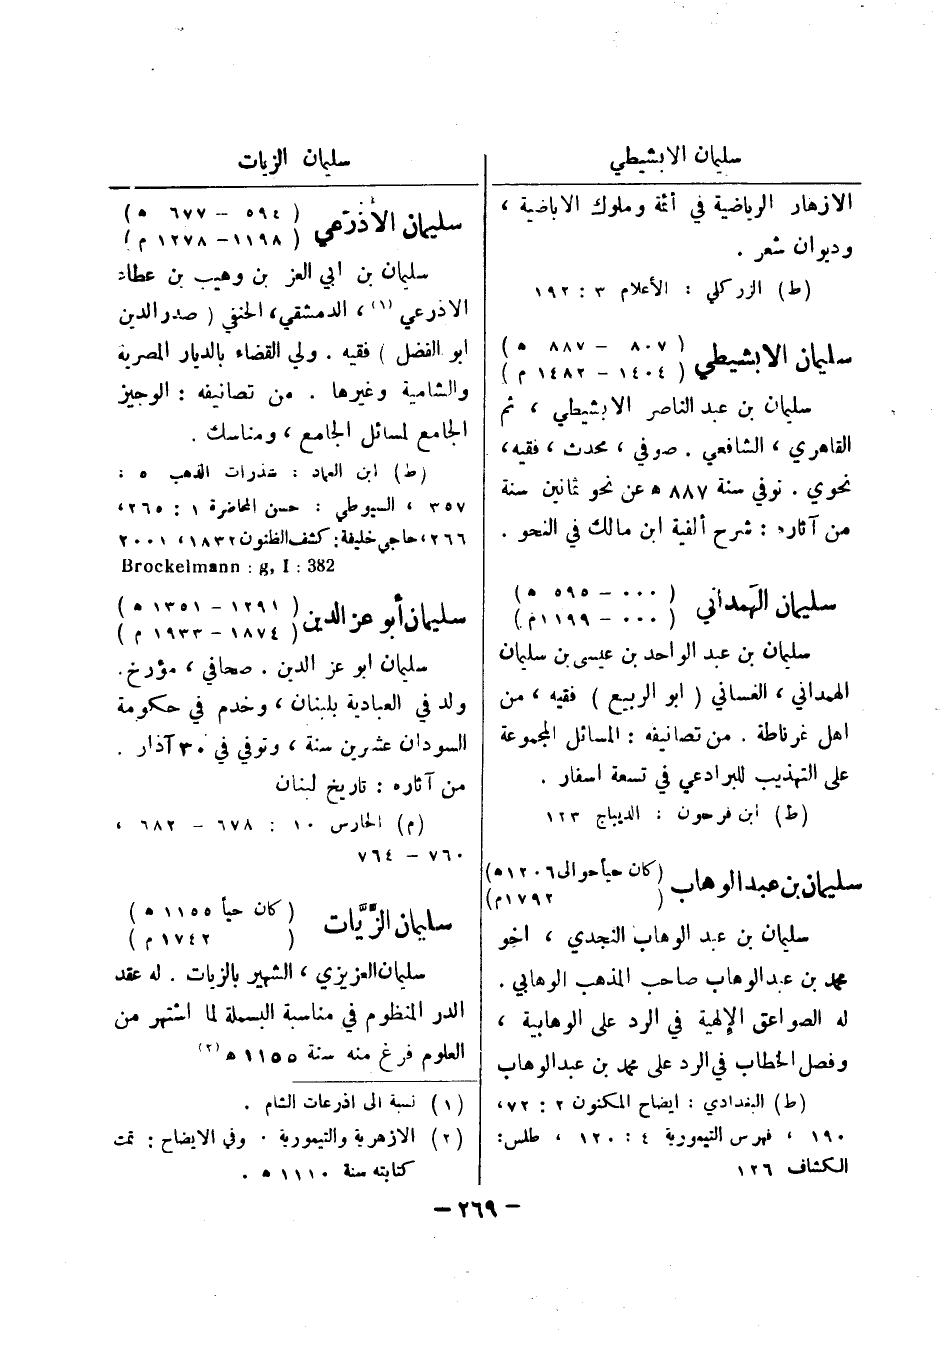 سليمان الابشيطي
الازهار الرياضية في أئمة وملوك الاباضية ،
وديوان شعر .
(ط) الزركلي : الأعلام ٣ : ١٩٢
سليمان الابشيطي ( ٨٠٧ – ٨٨٧ ه )
( ١٤٠٤ – ١٤٨٢ م )
سليمان بن عبد الناصر الابشيطي ، ثم
القاهري ، الشافعي . صوفي ، محدث ، فقيه ،
نحوي . توفي سنة ٨٨٧ ه عن نحو ثمانين سنة
من آثاره : شرح ألفية ابن مالك في النحو .
سليمان الهَمداني ( ٠٠٠ – ٥٩٥ ه )
( ٠٠٠ – ١١٩٩م )
سليمان بن عبد الواحد بن عيسى بن سليمان
الهمداني ، الغساني ( ابو الربيع ) فقيه ، من
اهل غرناطة . من تصانيفه : المسائل المجموعة
على التهذيب للبرادعي في تسعة اسفار .
(ط) ابن فرحون : الديباج ١٢٣
سليمان بن عبد الوهاب (كان حياً حوالى ١٢٠٦ه)
( ١٧٩٢م)
سليمان بن عبد الوهاب النجدي ، اخو
محمد بن عبدالوهاب صاحب المذهب الوهابي .
له الصواعق الإلهية في الرد على الوهابية ،
وفصل الخطاب في الرد على محمد بن عبدالوهاب
(ط) البغدادي : ايضاح المكنون ٢ : ٧٢،
١٩٠ ، فهرس التيمورية ٤ : ١٢٠ ، طلس:
الكشاف ١٢٦
سليمان الزيات
سليمان الأذرَعي ( ٥٩٤ – ٦٧٧ ه )
( ١١٩٨– ١٢٧٨ م )
سليمان بن ابي العز بن وهيب بن عطاء
الاذرعي (١) ، الدمشقي، الحنفي ( صدر الدين
ابو الفضل ) فقيه . ولي القضاء بالديار المصرية
والشامية وغيرها . من تصانيفه : الوجيز
الجامع لمسائل الجامع ، ومناسك .
(ط) ابن العماد : شذرات الذهب ٥ :
٣٥٧ ، السيوطي : حسن المحاضرة ١ : ٢٦٥،
٢٦٦، حاجي خليفة: كشف الظنون ١٨٣٢، ٢٠٠١
Brockelmann : g, I : 382
سليمان أبو عز الدين ( ١٢٩١ – ١٣٥١ ه )
( ١٨٧٤ – ١٩٣٣ م )
سليمان ابو عز الدين . صحافي ، مؤرخ.
ولد في العبادية بلبنان ، وخدم في حكومة
السودان عشرين سنة ، وتوفي في ٣٠ آذار .
من آثاره : تاريخ لبنان
(م) الحارس ١٠ : ٦٧٨ – ٦٨٢ ،
٧٦٠ – ٧٦٤
سليمان الزَّيَّات ( كان حياً ١١٥٥ ه )
( ١٧٤٢ م )
سليمان العزيزي ، الشهير بالزيات . له عقد
الدر المنظوم في مناسبة البسملة لما اشتهر من
العلوم فرغ منه سنة ١١٥٥ ه (٢)
(١) نسبة الى اذرعات الشام .
(٢) الازهرية والتيمورية . وفي الايضاح : تمت
كتابته سنة ١١١٠ ه .
– ٢٦٩ –